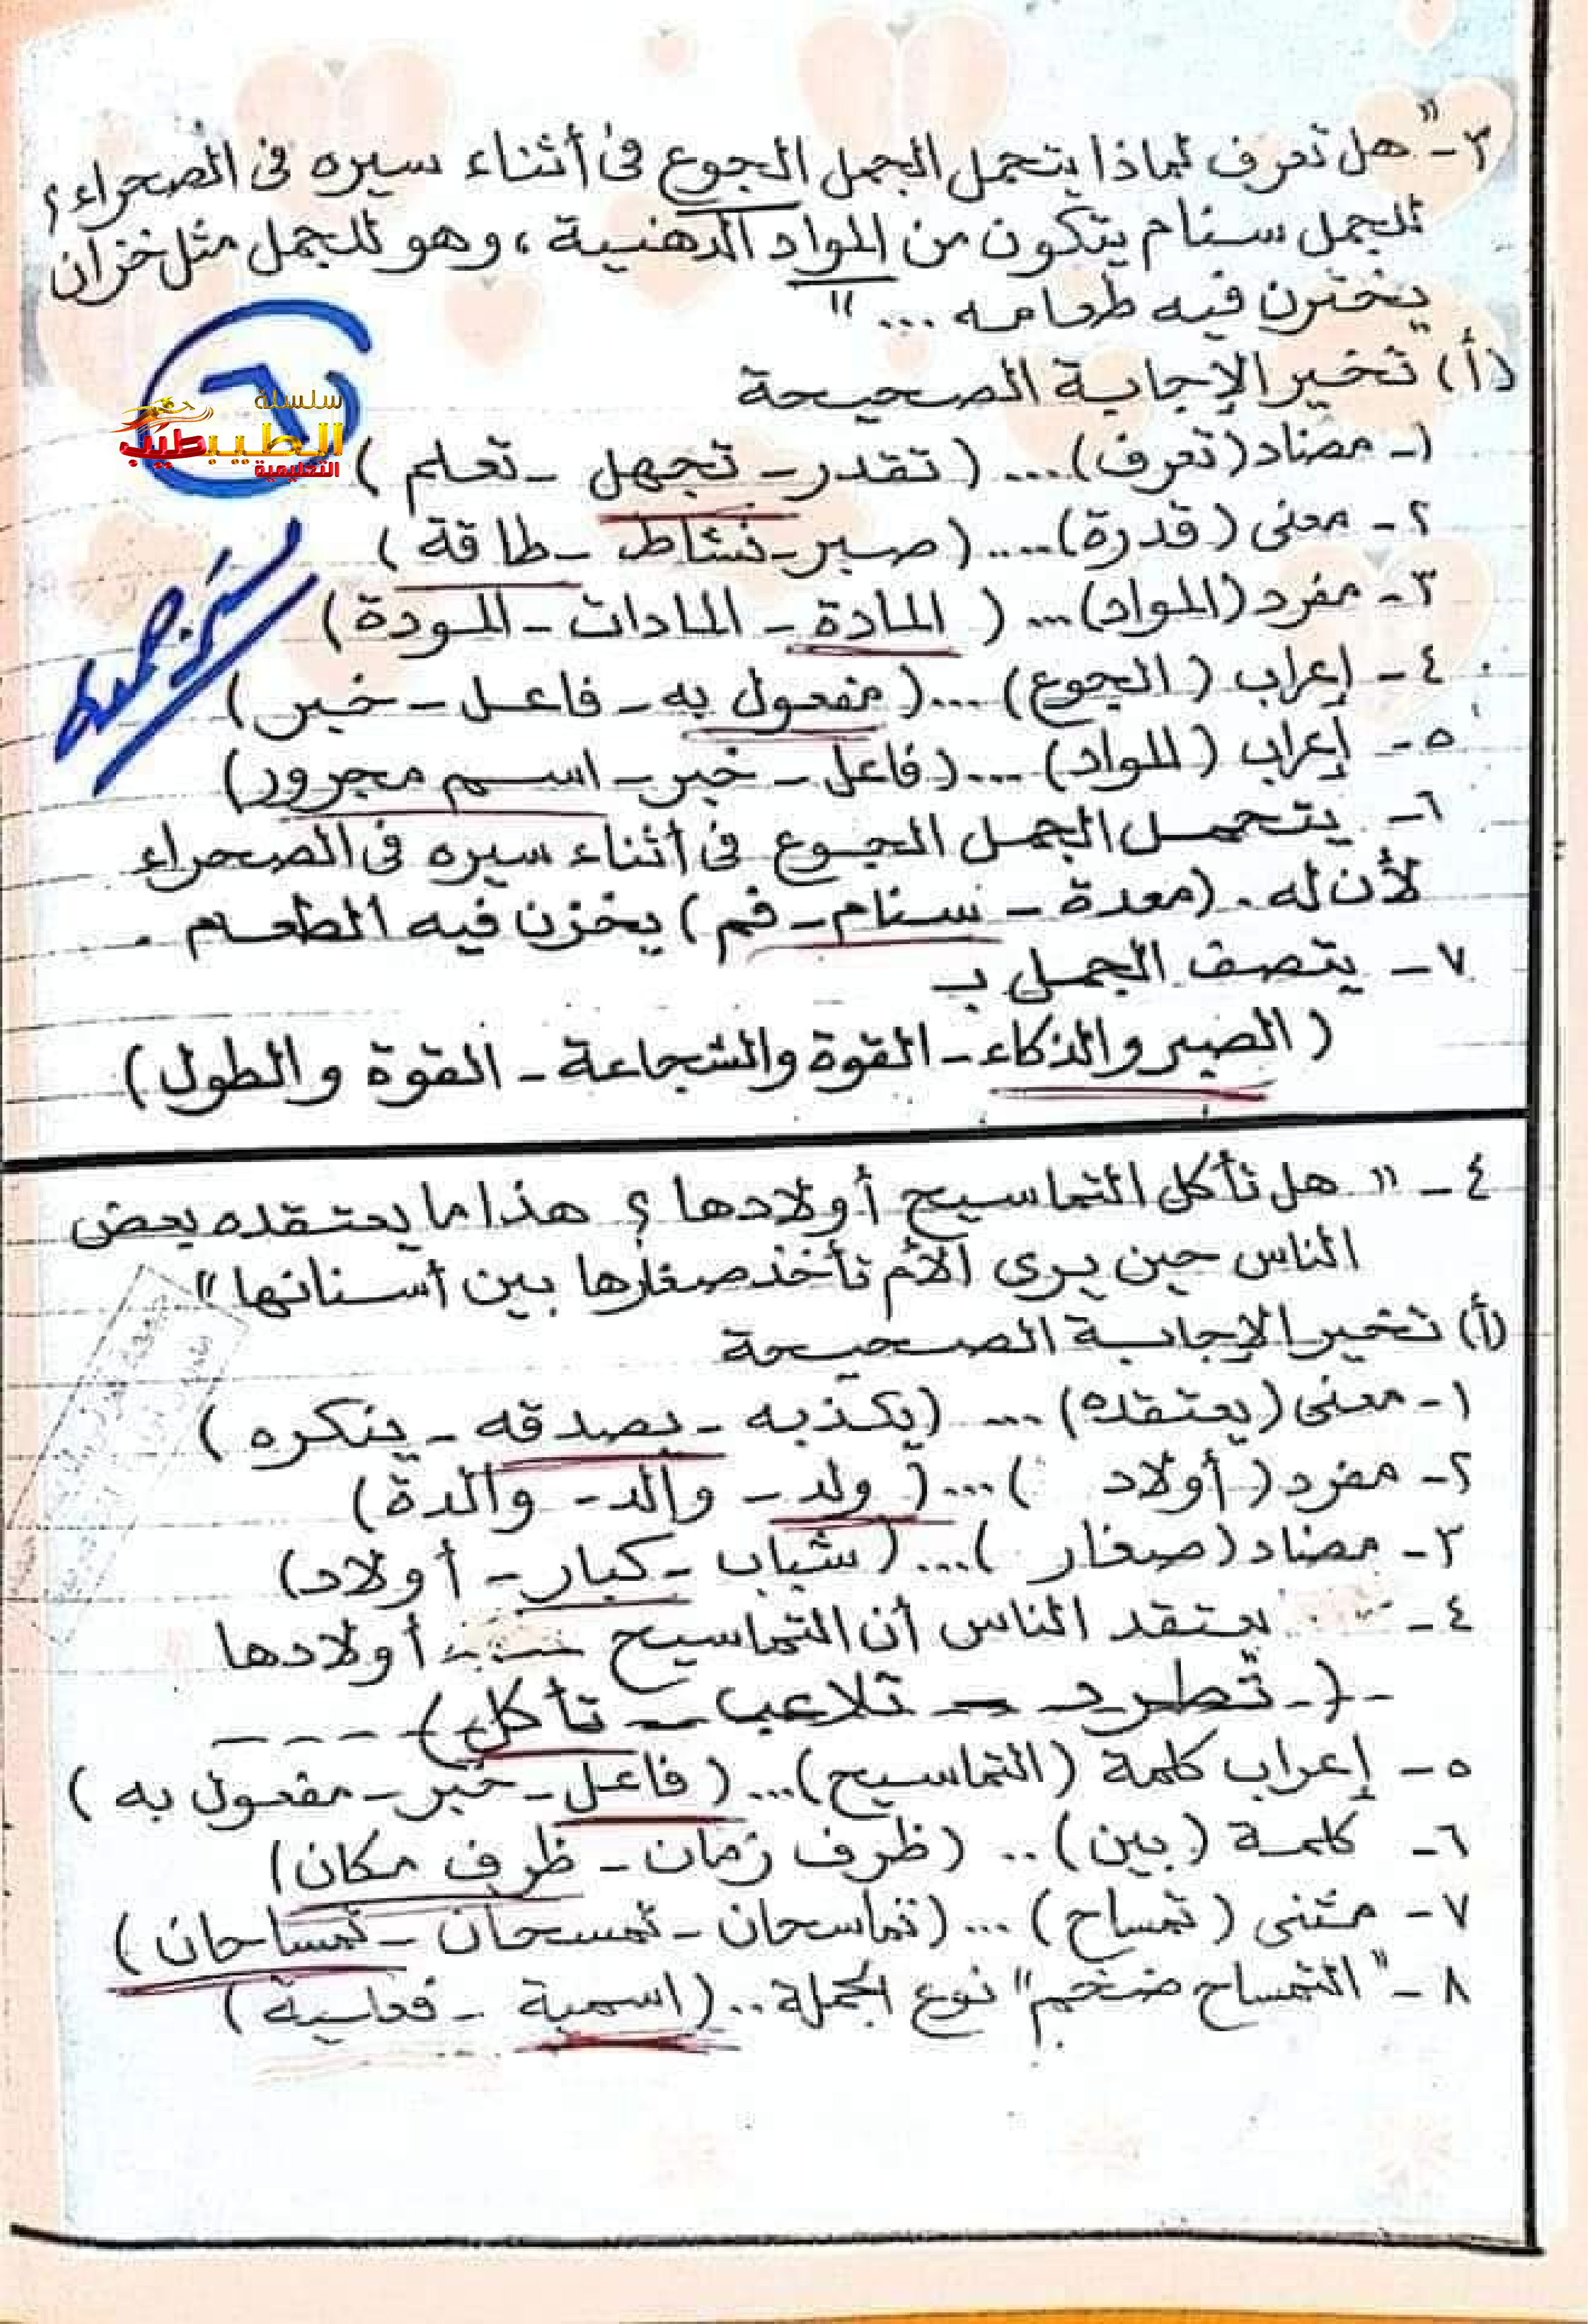 ٣- "هل تعرف لماذا يتحمل الجمل الجوع فى أثناء سيره فى الصحراء؟
للجمل سنام يتكون من المواد الدهنية، وهو للجمل مثل خزان
يختزن فيه طعامه ... "
(أ) تخير الإجابة الصحيحة
١- مضاد (تعرف) .... (تقدر - تجهل - تعلم)
٢- معنى (قدرة) ..... (صبر - نشاط - طاقة)
٣- مفرد (المواد) ... (المادة - المادات - المودة)
٤- إعراب (الجوع) .... (مفعول به - فاعل - خبر)
٥- إعراب (المواد) .... (فاعل - خبر - اسم مجرور)
٦- يتحمل الجمل الجوع فى أثناء سيره فى الصحراء
لأن له . (معدة - سنام - فم) يخزن فيه الطعام .
٧- يتصف الجمل بـ
(الصبر والذكاء - القوة والشجاعة - القوة والطول)
سلسلة
الطيبطيب
التعليمية
٦
٤- " هل تأكل التماسيح أولادها؟ هذا ما يعتقده بعض
الناس حين يرى الأم تأخذ صغارها بين أسنانها "
(أ) تخير الإجابة الصحيحة
١- معنى (يعتقده) .... (يكذبه - يصدقه - ينكره)
٢- مفرد (أولاد) .... (ولد - والد - والدة)
٣- مضاد (صغار) .... (شباب - كبار - أولاد)
٤- يعتقد الناس أن التماسيح ..... أولادها
(تطرد - تلاعب - تأكل)
٥- إعراب كلمة (التماسيح) ... (فاعل - خبر - مفعول به)
٦- كلمة (بين) .. (ظرف زمان - ظرف مكان)
٧- مثنى (تمساح) ... (تماسحان - تمسحان - تمساحان)
٨- "التمساح ضخم" نوع الجملة .. (اسمية - فعلية)